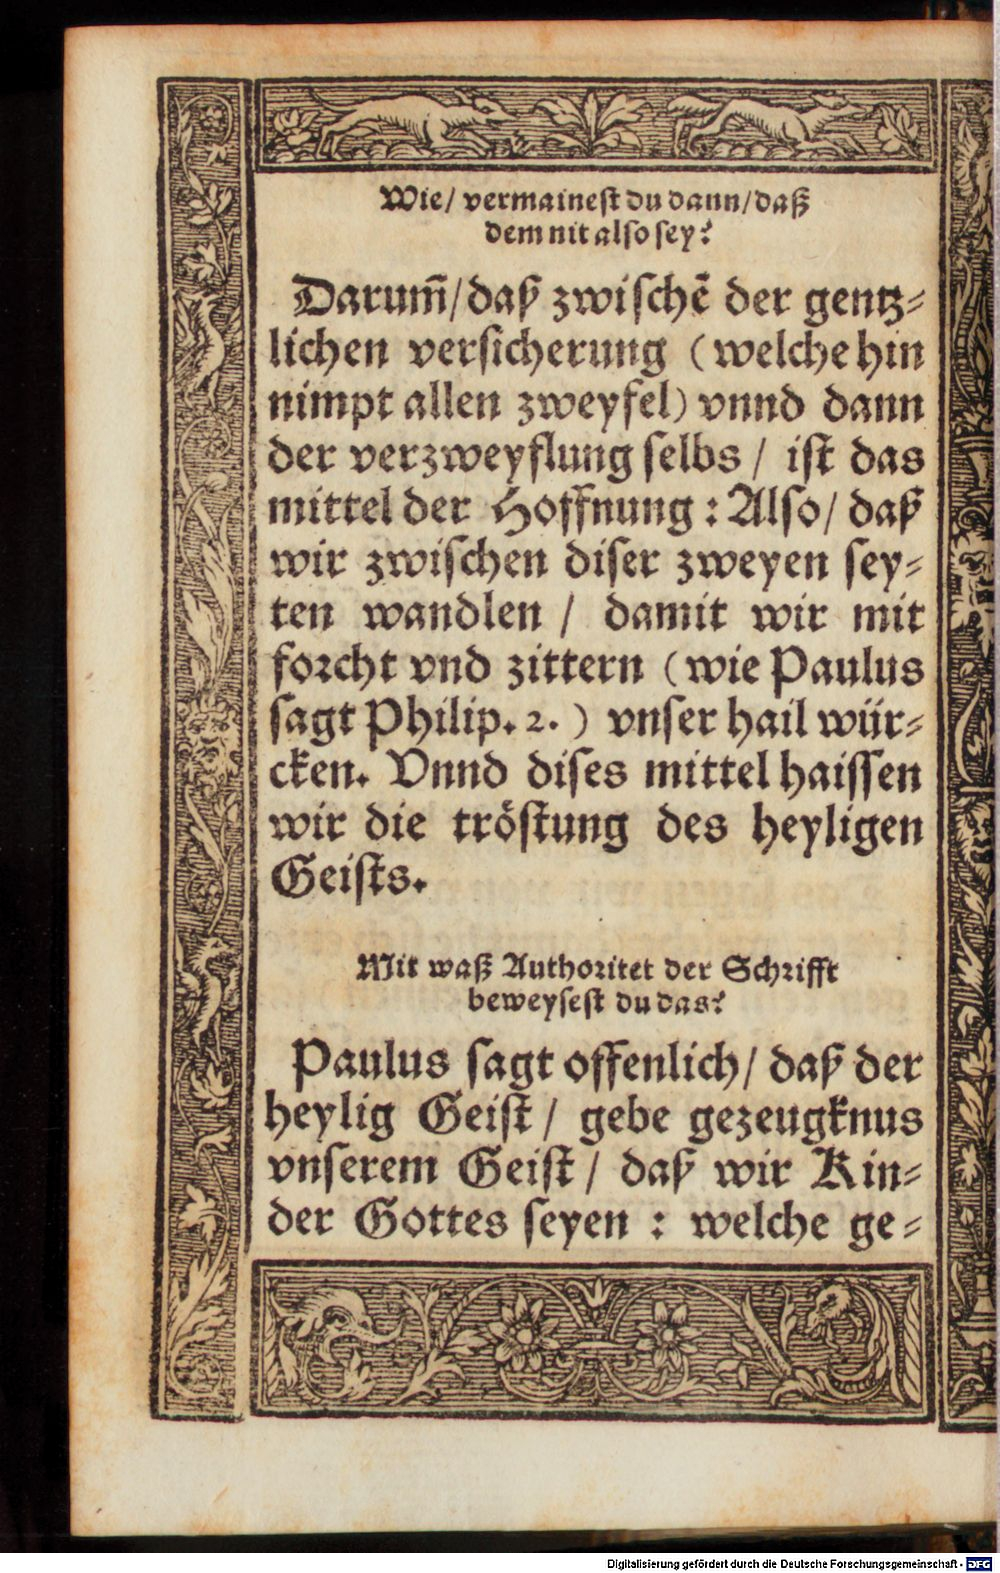 Wie/ vermainest du dann/ daß
dem nit also sey?
Darum̃/ daß zwischẽ der gentz⸗
lichen versicherung (welche hin
nimpt allen zweyfel) vnnd dann
der verzweyflung selbs / ist das
mittel der Hoffnung : Also/ daß
wir zwischen diser zweyen sey⸗
ten wandlen / damit wir mit
forcht vnd zittern (wie Paulus
sagt Philip. 2. ) vnser hail wür⸗
cken. Vnnd dises mittel haissen
wir die tröstung des heyligen
Geists.
Mit waß Authoritet der Schrifft
beweysest du das?
Paulus sagt offenlich/ daß der
heylig Geist / gebe gezeugknus
vnserem Geist / daß wir Kin⸗
der Gottes seyen : welche ge⸗
Digitalisierung gefördert durch die Deutsche Forschungsgemeinschaft - DFG